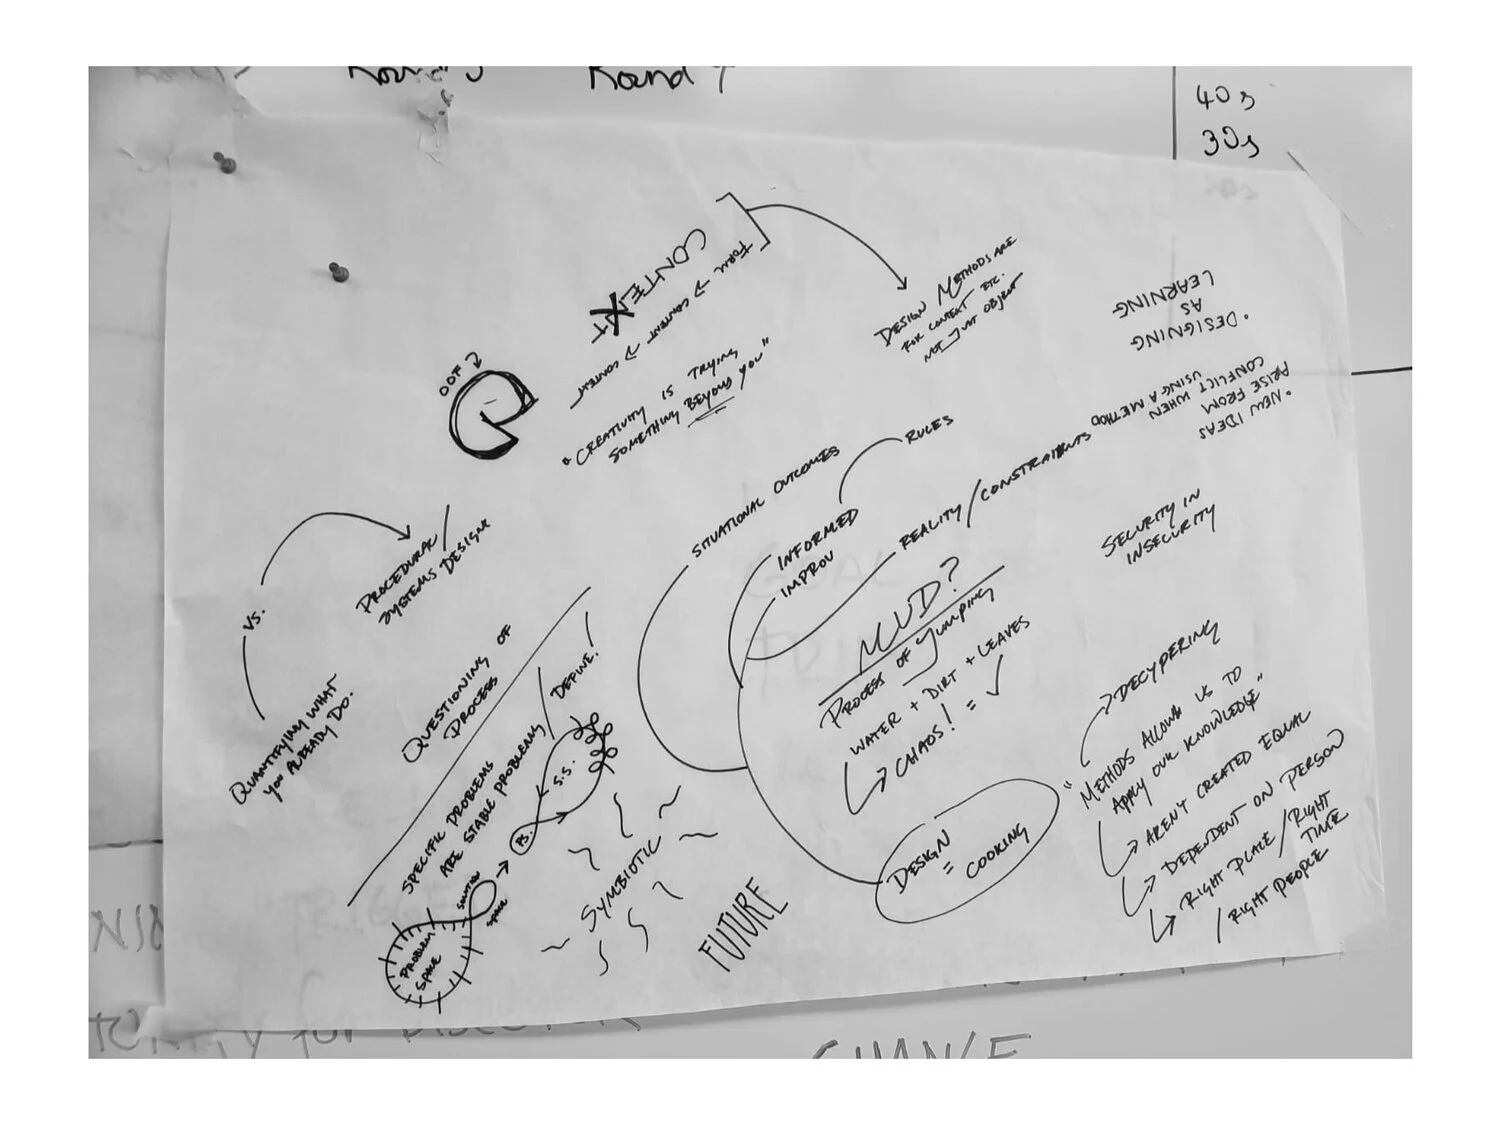 Round
40s
30s
CONTEXT
FORM → CONTENT → CONTEXT
DESIGN METHODS ARE
FOR CONTEXT ETC.
NOT JUST OBJECT
OOF
"CREATIVITY IS TRYING
SOMETHING BEYOND YOU"
• DESIGNING
AS
LEARNING
• NEW IDEAS
ARISE FROM
CONFLICT WHEN
USING A METHOD
SITUATIONAL OUTCOMES
RULES
INFORMED
IMPROV
REALITY/CONSTRAINTS
SECURITY IN
INSECURITY
VS.
PROCEDURAL/
SYSTEMS DESIGN
QUANTIFYING WHAT
YOU ALREADY DO.
QUESTIONING OF
PROCESS
SPECIFIC PROBLEMS
ARE STABLE PROBLEMS/
DEFINE!
PROBLEM
SPACE
SOLUTION
SPACE
P.S.
S.S.
SYMBIOTIC
FUTURE
MUD?
PROCESS OF JUMPING
WATER + DIRT + LEAVES
CHAOS! = ✓
DESIGN
= COOKING
DECYPERING
"METHODS ALLOW US TO
APPLY OUR KNOWLEDGE"
AREN'T CREATED EQUAL
DEPENDENT ON PERSON
RIGHT PLACE/RIGHT
TIME
/RIGHT PEOPLE
CHANCE